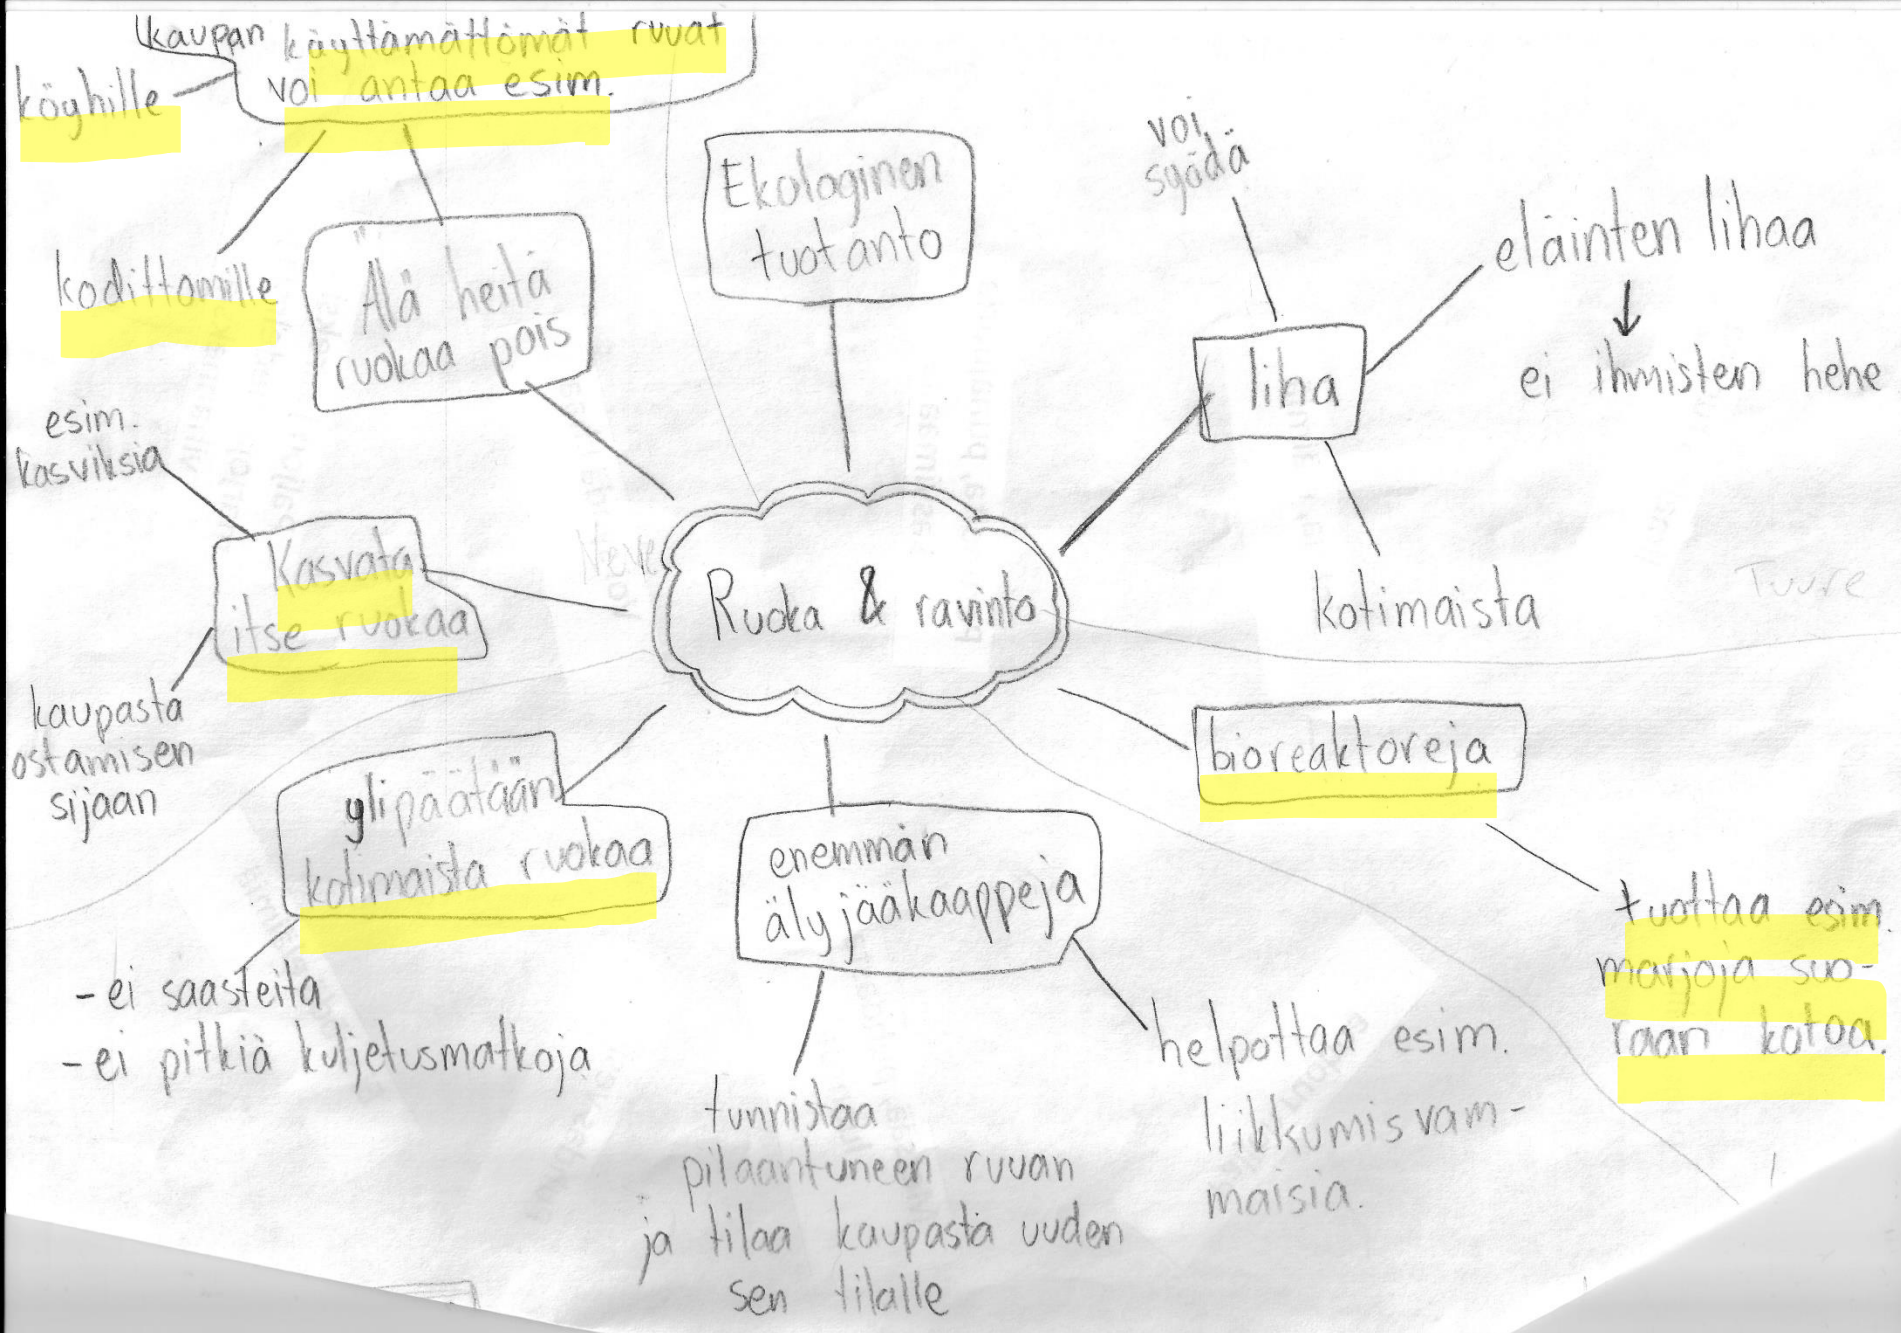 kaupan käyttämättömät ruuat
voi antaa esim.
köyhille
kodittomille
Älä heitä
ruokaa pois
Ekologinen
tuotanto
voi
syödä
liha
eläinten lihaa
↓
ei ihmisten hehe
kotimaista
esim.
kasviksia
Kasvata
itse ruokaa
kaupasta
ostamisen
sijaan
Ruoka & ravinto
Tuure
bioreaktoreja
tuottaa esim.
marjoja suo-
raan kotoa.
ylipäätään
kotimaista ruokaa
- ei saasteita
- ei pitkiä kuljetusmatkoja
enemmän
älyjääkaappeja
tunnistaa
pilaantuneen ruuan
ja tilaa kaupasta uuden
sen tilalle
helpottaa esim.
liikkumisvam-
maisia.